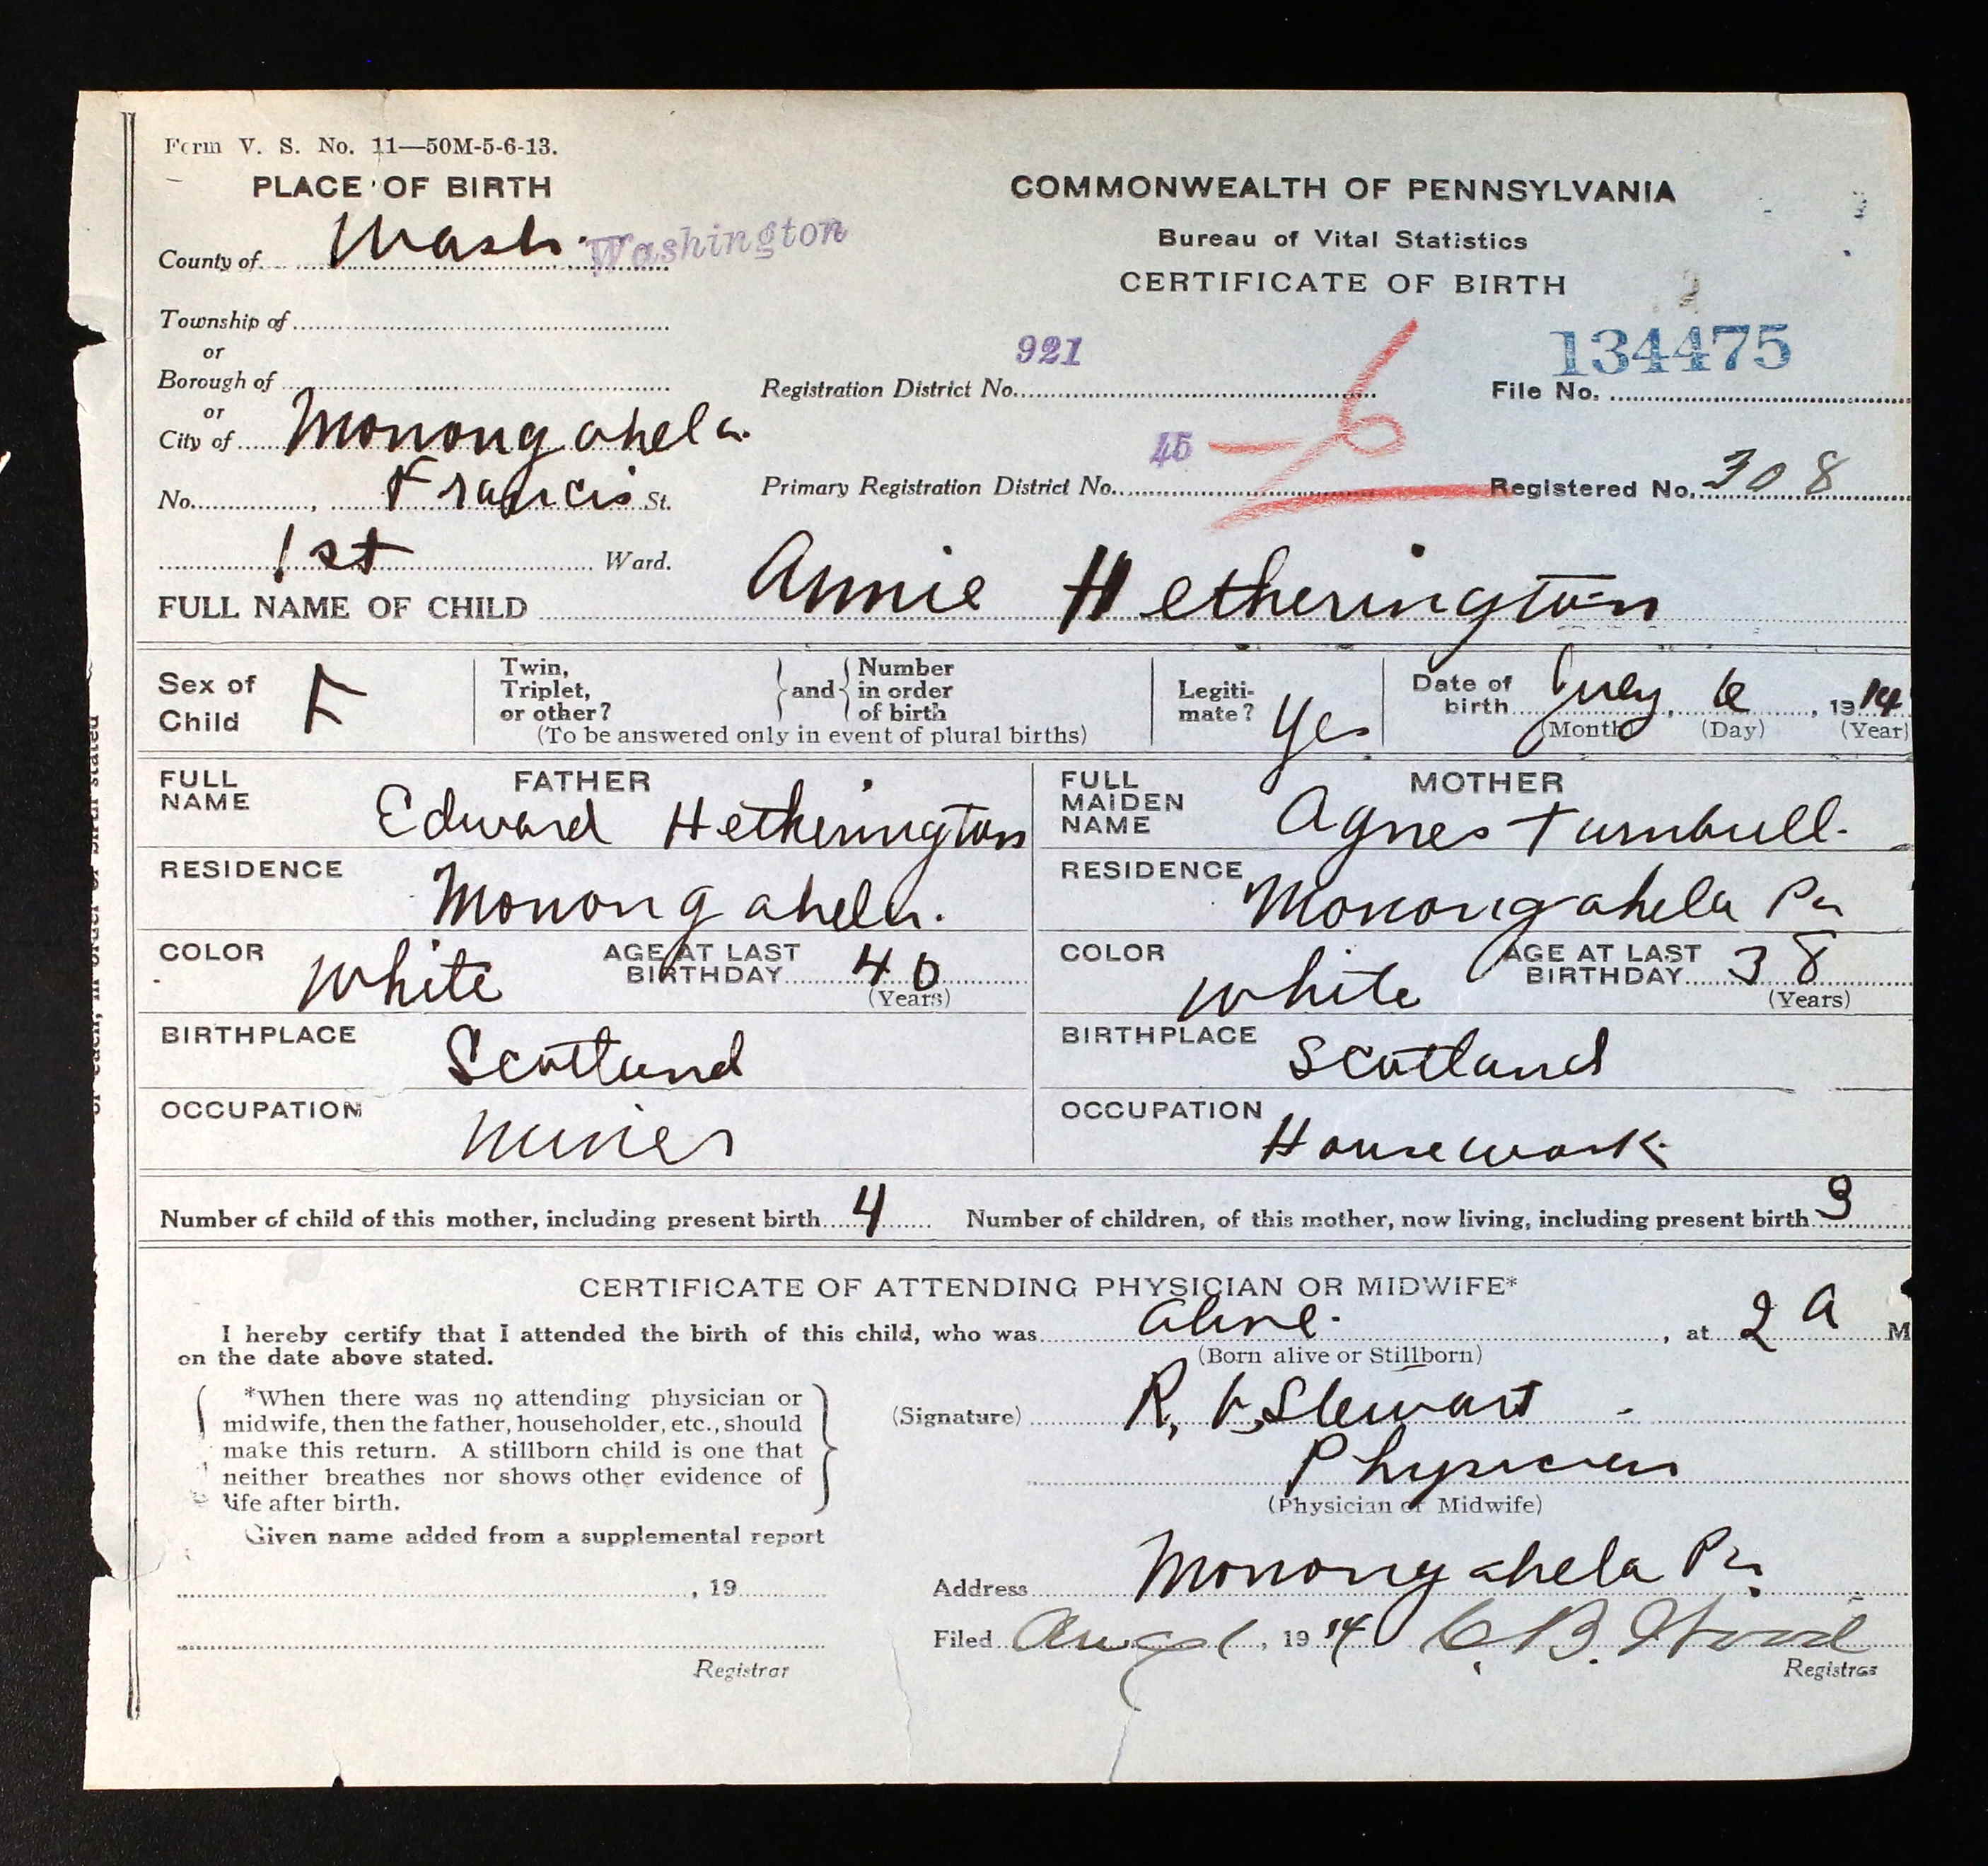 Form V. S. No. 11—50M-5-6-13.
PLACE OF BIRTH
County of Wash. Washington
Township of
or
Borough of
or
City of Monongahela.
No. , Francis St.
1st Ward.
COMMONWEALTH OF PENNSYLVANIA
Bureau of Vital Statistics
CERTIFICATE OF BIRTH
921
Registration District No.
134475
File No.
45 — 6
Primary Registration District No.
Registered No. 308
FULL NAME OF CHILD Annie Hetherington
Sex of Child F
Twin, Triplet, or other? and Number in order of birth
(To be answered only in event of plural births)
Legiti-mate? Yes
Date of birth July, 6, 1914
(Month) (Day) (Year)
FATHER
FULL NAME Edward Hetherington
RESIDENCE Monongahela.
COLOR White AGE AT LAST BIRTHDAY 40
(Years)
BIRTHPLACE Scotland
OCCUPATION Miner
MOTHER
FULL MAIDEN NAME Agnes Turnbull.
RESIDENCE Monongahela Pa
COLOR White AGE AT LAST BIRTHDAY 38
(Years)
BIRTHPLACE Scotland
OCCUPATION Housework.
Number of child of this mother, including present birth 4 Number of children, of this mother, now living, including present birth 3
CERTIFICATE OF ATTENDING PHYSICIAN OR MIDWIFE*
I hereby certify that I attended the birth of this child, who was alive. , at 2 A M
on the date above stated. (Born alive or Stillborn)
*When there was no attending physician or
midwife, then the father, householder, etc., should
make this return. A stillborn child is one that
neither breathes nor shows other evidence of
life after birth.
(Signature) R. Stewart
Physician
(Physician or Midwife)
Given name added from a supplemental report
, 19
Registrar
Address Monongahela Pa.
Filed Aug 1, 1914 C. B. Wood
Registrar
of each, in order of birth stated